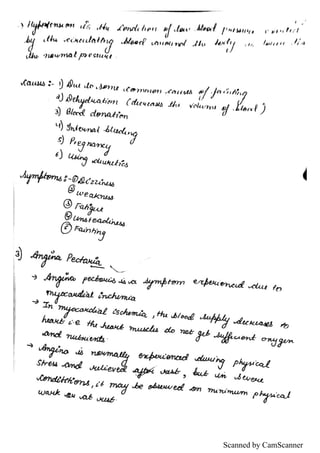 → Hypotension is the condition of low blood pressure exerted
by the circulating blood around the body is lower than
the normal pressure.
Causes :- 1) Due to some common causes of fainting
2) Dehydration (decreases the volume of blood)
3) Blood donation
4) Internal bleeding
5) Pregnancy
6) Using diuretics
Symptoms :- ① Dizziness
② weakness
③ Fatigue
④ Unsteadiness
⑤ Fainting
3) Angina Pectoris
→ Angina pectoris is a symptom experienced due to
myocardial ischemia
→ In myocardial ischemia, the blood supply decreases to
heart i.e the heart muscles do not get sufficient oxygen
and nutrients.
→ Angina is normally experienced during physical
stress and relieved after rest, but in severe
conditions, it may be observed on minimum physical
work or at rest.
Scanned by CamScanner